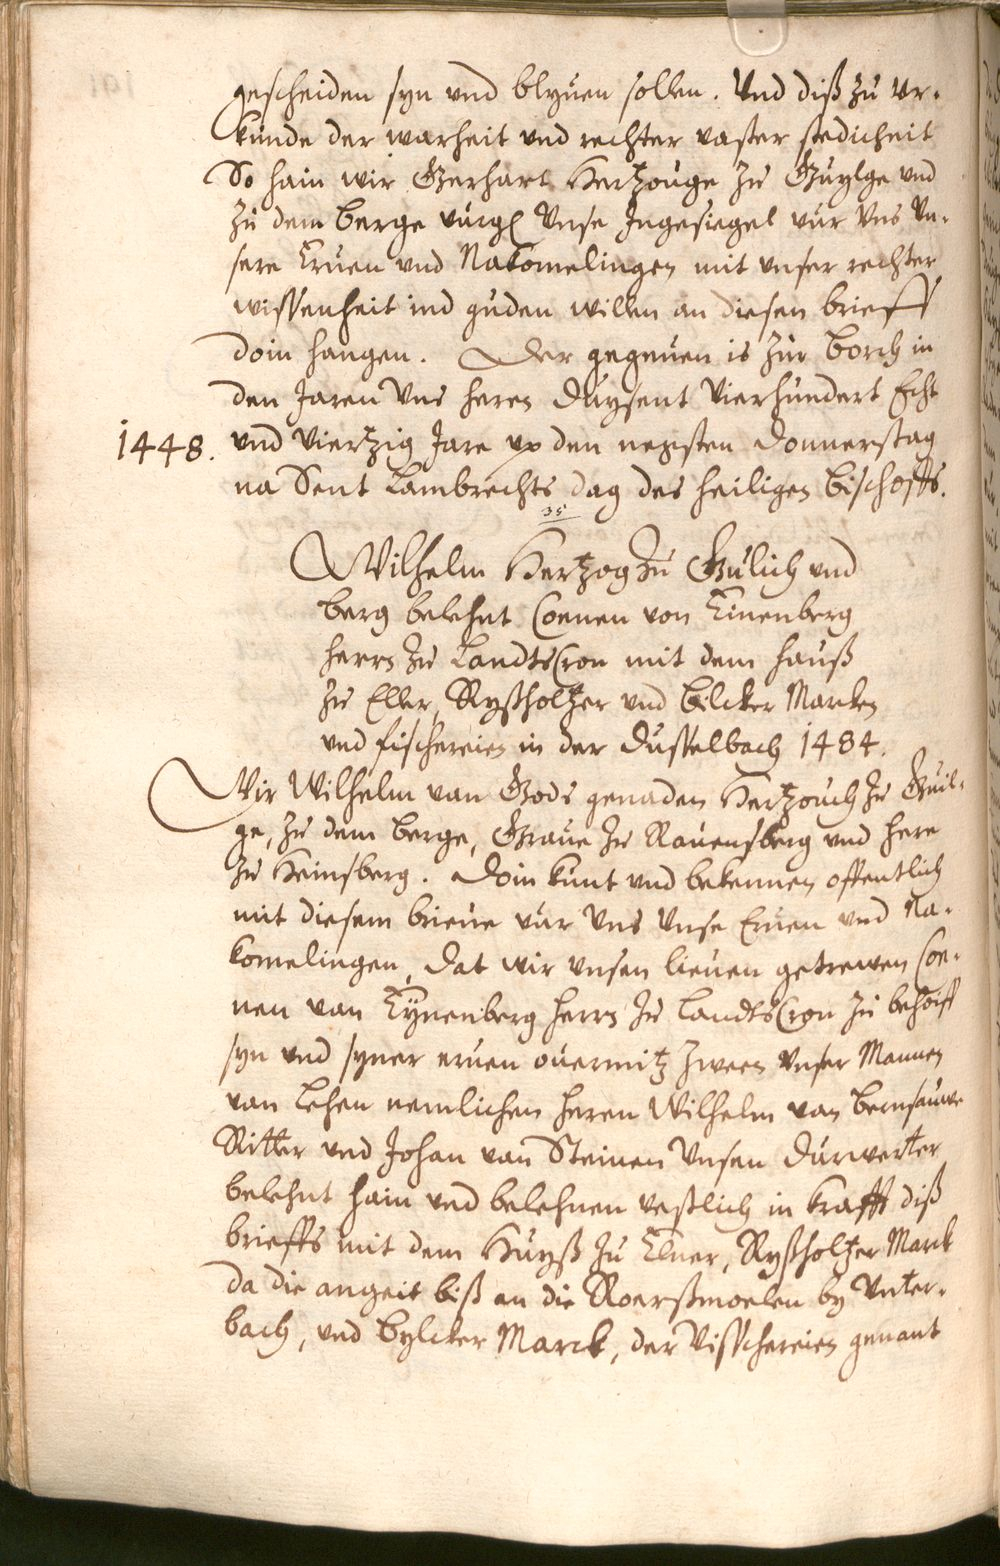 gescheiden syn vnd blyuen sollen. Vnd diß zu Vr-
kunde der warheit vnd rechter vaster stedicheit
So hain wir Gerhart Hertzouge zu Guylge vnd
zu dem Berge Vnse Ingesiegel vur Vns Vn-
sere Eruen vnd Nakomelingen mit vnser rechter
wissenheit ind guden willen an diesen brieff
doin hangen. Der gegeuen is zur Borch in
den Jaren Vns heren Duysent Vierhundert Echt
1448. vnd Viertzig Jare vp den negsten Donnerstag
na Sent Lambrechts dag des heiligen Bischoffs.
35
Wilhelm Hertzog zu Gulich vnd
Berg belehnt Coenen von Einenberg
herrn zu Landtscron mit dem hauß
zu Eller, Ryßholtzer vnd Bilcker Marcken
vnd fischereien in der Dusselbach 1484.
Wir Wilhelm van Gods genaden Hertzouch zu Guil-
ge, zu dem Berge, Graue zu Rauensberg vnd here
zu Heinsberg. Doin kunt vnd bekennen offentlich
mit diesem brieue vur Vns Vnse Eruen vnd Na-
komelingen, dat wir vnsen lieuen getrewen Coe-
nen van Eynenberg herrn zu Landtscron zu behoiff
syn vnd syner eruen ouermitz zween Vnser Mannen
van Lehen nemlichen heren Wilhelm van Bernsauwe
Ritter vnd Johan van Steinen Vnsen Durwerter
belehnt hain vnd belehnen vestlich in krafft diß
brieffs mit dem Huyß zu Elner, Ryßholtzer Marck
da die angeit biß an die Roerßmoelen by Vnter-
bach, vnd Bylcker Marck, der Visschereien genant